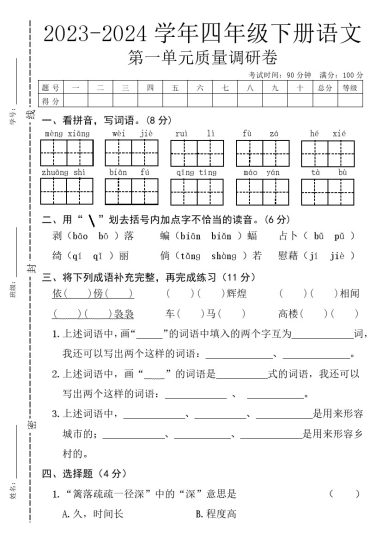 2023-2024 学年四年级下册语文
第一单元质量调研卷
考试时间：90分钟 满分：100分
题号 一 二 三 四 五 六 七 八 九 十 总分 等级
得分
一、看拼音，写词语。(8 分)
mèng xiāng wèi jiè ruì lì fù zá hé xié
zhuāng shì biàn fú qīng tíng māo yán tà bù
二、用“\”划去括号内加点字不恰当的读音。(6 分)
剥（bāo bō）落 蝙（biān biǎn）蝠 占卜（bǔ pǔ）
绮（qí qǐ）丽 倘（tǎng shàng）若 慰藉（jí jiè）
三、将下列成语补充完整，再完成练习（11 分）
依( )傍( ) ( )( )辉煌 ( )( )相闻
( )( )袅袅 车( )马( ) 高楼( )( )
1.上述词语中，画“ ”的词语中填入的两个字互为 词，
我还可以写出两个这样的词语： 、 。
2.上述词语中，画“ ”的词语是 式的词语，我还可以
写出两个这样的词语： 、 。
3.上述词语中， 、 、 是用来形容
城市的； 、 、 是用来形容乡
村的。
四、选择题（4 分）
1.“篱落疏疏一径深”中的“深”意思是 （ ）
A.久，时间长 B.程度高
学号：
班级：
姓名：
线
封
密